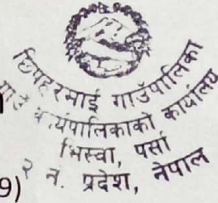 छिपहरमाई गाउँपालिका
गाउँ कार्यपालिकाको कार्यालय
भिस्वा, पर्सा
२ नं. प्रदेश, नेपाल
9)